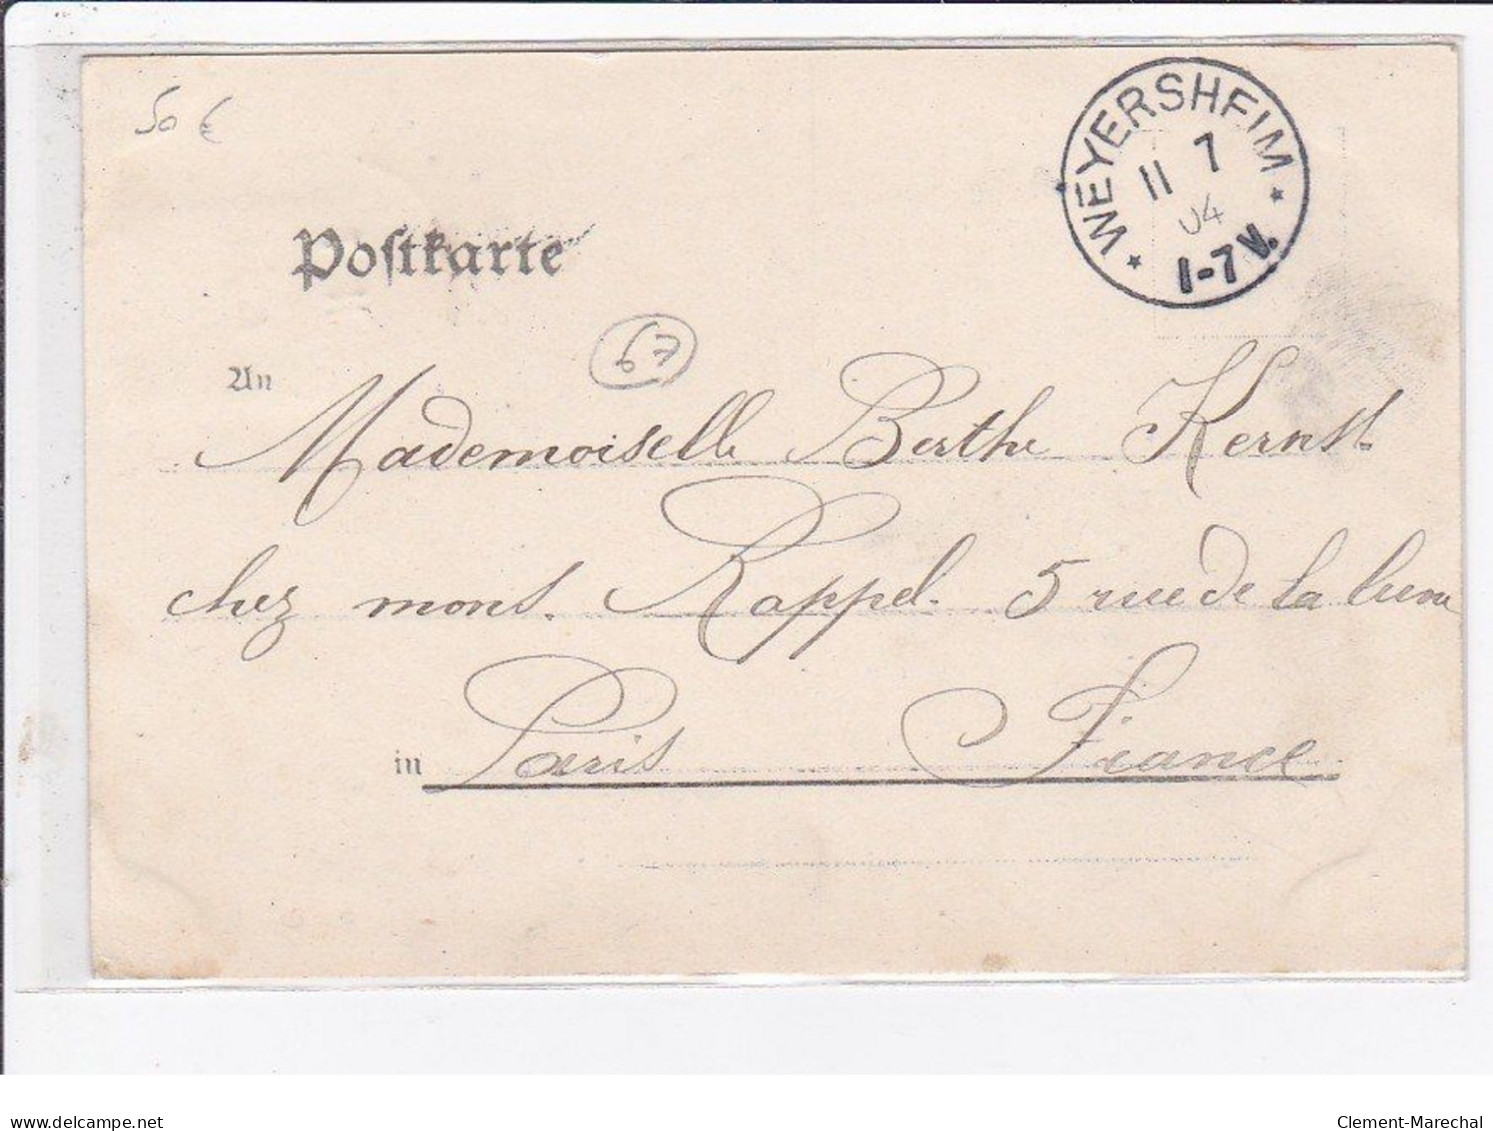 50 €
WEYERSHEIM
11 7
04
1-7V.
Postkarte
67
An
Mademoiselle Berthe Kernst
chez mons. Rappel. 5 rue de la lune
in Paris France
delcampe.net
Clement-Marechal